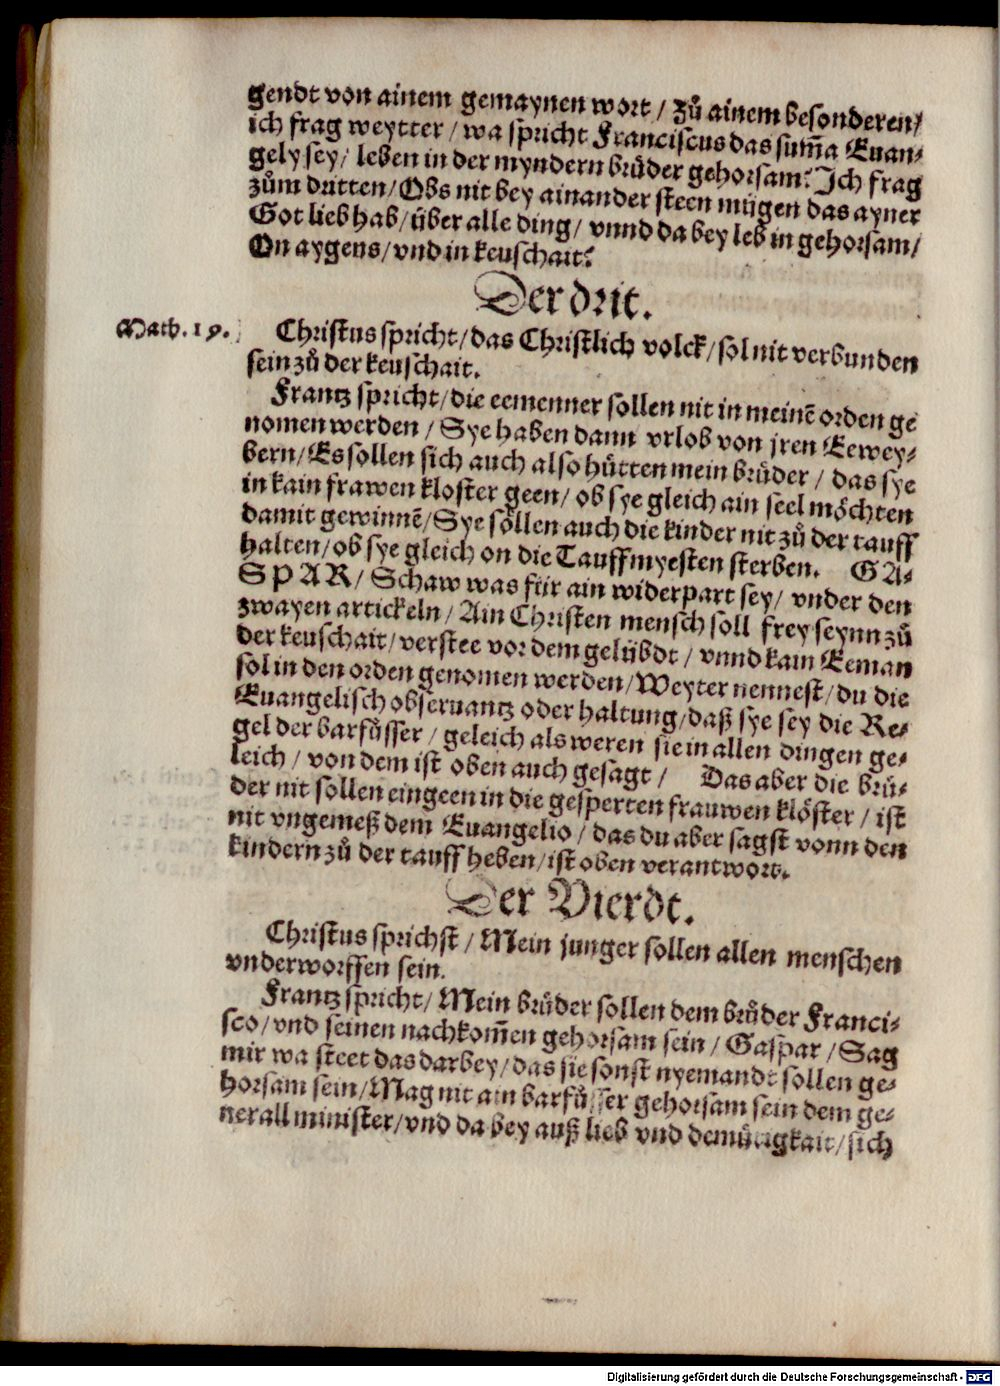 gendt von ainem gemaynen wort / zů ainem besonderen/
ich frag weytter / wa spricht Franciscus das sum̄a Euan-
gely sey / leben in der myndern brůder gehorsam? Ich frag
zům dritten / Obs nit bey ainander steen mügen das ayner
Got lieb hab / über alle ding / vnnd da bey leb in gehorsam /
On aygens / vnd in keuschait?
Der drit.
Math. 19.
Christus spricht / das Christlich volck / sol nit verbunden
sein zů der keuschait.
Frantz spricht / die eemenner sollen nit in meinē orden ge
nomen werden / Sye haben dann vrlob von jren Eewey-
bern / Es sollen sich auch also hütten mein brůder / das sye
in kain frawen kloster geen / ob sye gleich ain seel möchten
damit gewinnē / Sye söllen auch die kinder nit zů der tauff
halten / ob sye gleich on die Tauff myesten sterben. GA-
SPAR / Schaw was für ain widerpart sey / vnder den
zwayen artickeln / Ain Christen mensch soll frey seynn zů
der keuschait / verstee vor dem gelübdt / vnnd kain Eeman
sol in den orden genomen werden / Weyter nennest / du die
Euangelisch obseruantz oder haltung / daß sye sey die Re-
gel der barfůsser / geleich als weren sie in allen dingen ge-
leich / von dem ist oben auch gesagt / Das aber die brů-
der nit sollen eingeen in die gesperten frauwen klöster / ist
nit vngemeß dem Euangelio / das du aber sagst vonn den
kindern zů der tauff heben / ist oben verantwort.
Der Vierdt.
Christus sprichst / Mein junger sollen allen menschen
vnderworffen sein.
Frantz spricht / Mein brůder sollen dem brůder Franci-
sco / vnd seinen nachkom̄en gehorsam sein / Gaspar / Sag
mir wa steet das darbey / das sie sonst nyemandt sollen ge-
horsam sein / Mag nit ain barfůsser gehorsam sein dem ge-
nerall minister / vnd da bey auß lieb vnd demůtigkait / sich
Digitalisierung gefördert durch die Deutsche Forschungsgemeinschaft - DFG